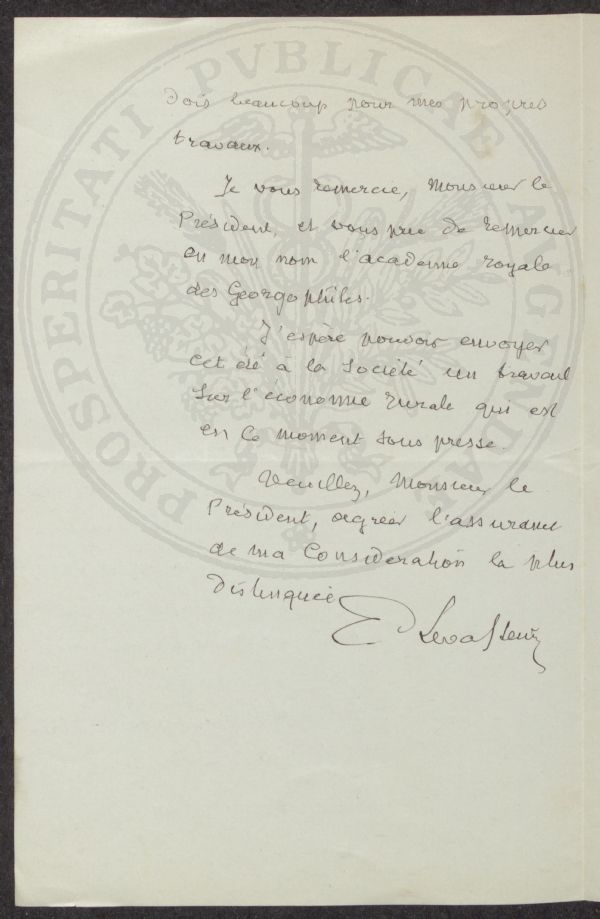 PROSPERITATI PVBLICAE AVGENDAE
dois beaucoup pour mes propres
travaux.
Je vous remercie, Monsieur le
Président, et vous prie de remercier
en mon nom l'académie royale
des Georgophiles.
J'espère pouvoir envoyer
cet été à la Société un travail
sur l'économie rurale qui est
en ce moment sous presse.
Veuillez, Monsieur le
Président, agréer l'assurance
de ma Considération la plus
distinguée
E Levasseur